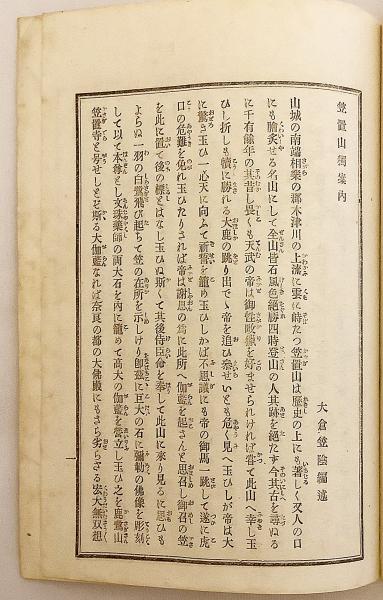 笠置山御案内
大倉笠陰編述
山城の南端相樂の郡木津川の上流に雲に峙たつ笠置山は歷史の上にも著しく又人の口
にも膾炙せる名山にして全山皆石風色絕勝四時登山の人其跡を絕たす今其古を尋ぬる
に千有餘年の其昔し畏くも天武の帝は御性畋獵を好ませられけれは甞て此山へ幸し玉
ひし折しも犢に勝れる大鹿の跳り出て帝を追ひ奉いとも危く見へ玉ひしが帝は大
に驚き玉ひ一心天に向ふて祈誓を籠め玉ひしかば不思議にも帝の御馬一跳して遂に虎
口の危難を免れ玉ひたりされば帝は謝馬の爲に此所へ伽藍を起さんと思召し御召の笠
を此に置て後の標とはなし玉ひぬ斯くて其後侍臣命を奉して此山に來り見るに思ひも
よらぬ一羽の白鷺飛び起ちて笠の在所を示しけり卽玆に巨大の石に彌勒の佛像を彫刻
して以て本尊とし文珠藥師の兩大石を內に籠めて高大の伽藍を營立し玉ひ之を鹿鷺山
笠置寺と号せしとぞ斯る大伽藍なれば奈良の都の大佛殿にもさら劣らさる宏大無双想
一